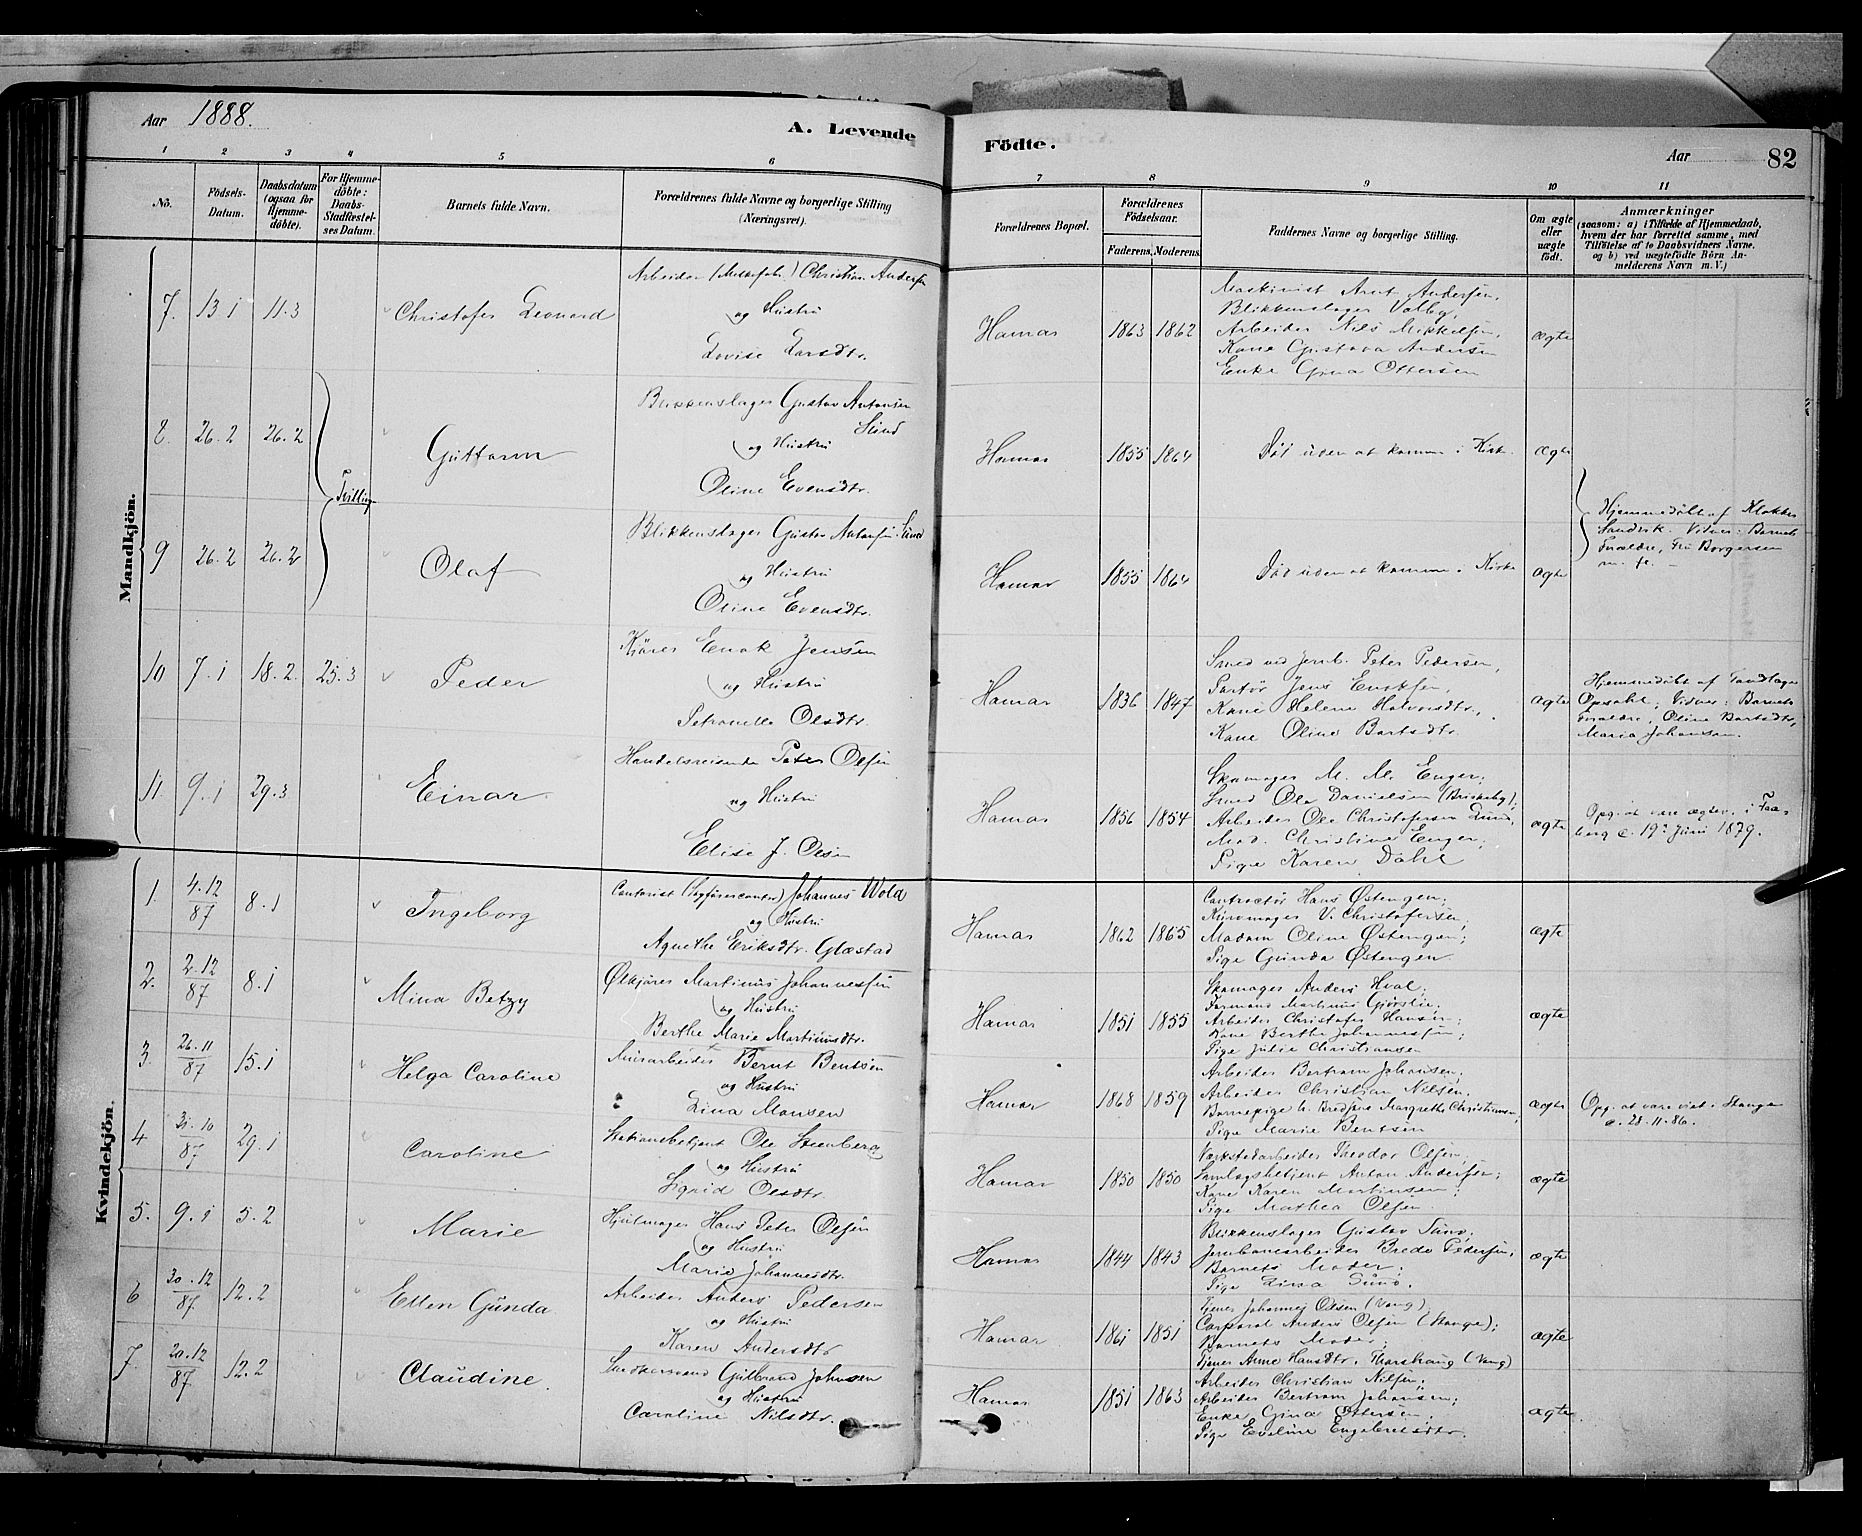 Aar 1888.
A. Levende Fødte.
Aar 82
1 2 3 4 5 6 7 8 9 10 11
No.
Födsels-Datum.
Daabsdatum (ogsaa for Hjemmedöbte).
For Hjemmedöbte: Daabs-Stadfæstelses Datum.
Barnets fulde Navn.
Forældrenes fulde Navne og borgerlige Stilling (Næringsvei).
Forældrenes Bopæl.
Forældrenes Födselsaar.
Faderens. Moderens.
Faddernes Navne og borgerlige Stilling.
Om ægte eller uægte födt.
Anmærkninger
(saasom: a) i Tilfælde af Hjemmedaab,
hvem der har forrettet samme, med
Tilföielse af to Daabsvidners Navne,
og b) ved uægtefödte Börn Anmelderens Navn m. V.)
Mandkjön.
7. 13.1 11.3 Christofer Leonard
Arbeider Christian Andersen
og Hustru
Lovise Larsdtr.
Hamar 1863 1862
Maskinist Arnt Andersen,
Blikkenslager Valby,
Arbeider Nils Mikkelsen,
Kone Gustava Andersen
Enke Gina Ottersen
ægte
8. 26.2 26.2 Tvilling Guttorm
Blikkenslager Gustav Antonsen
Sund
og Hustru
Oline Evensdtr.
Hamar 1855 1864
Död uden at komme i Kirke
ægte
9 26.2 26.2 Olaf
Blikkenslager Gustav Antonsen Sund
og Hustru
Oline Evensdtr.
Hamar 1855 1864
Död uden at komme i Kirke
ægte
Hjemmedöbt af Klokker
Sandvik. Vidner: Barnets
Forældre, Fru Borgersen
m. fl.
10 7.1 18.2 25.3 Peder
Kjører Enok Jensen
og Hustru
Petronelle Olsdtr.
Hamar 1836 1847
Smed ved Jernb. Peter Pedersen,
Jens Enoksen,
Kone Helene Halvorsdtr.,
Kone Oline Bartsdtr.
ægte
Hjemmedöbt af Tandlæge
Opsahl; Vidner: Barnets
Forældre, Oline Bartsdtr,
Maria Johansen.
11 9.1 29.3 Einar
Handelsreisende Peter Olsen
og Hustru
Elise J. Olsen
Hamar 1856 1854
Skomager M. M. Enger;
Smed Ole Danielsen (Briskeby);
Arbeider Ole Christofersen Lund,
Mad. Christine Enger,
Pige Karen Dahl
ægte
Opg. at være ægtev. i Faaberg
c. 19. Juni 1879.
Kvindekjön.
1. 4.12/87 8.1 Ingeborg
Contorist (Sagførercontor) Johannes Wold
og Hustru
Agnethe Eriksdtr. Glæstad
Hamar 1862 1865
Contractör Hans Østengen;
Christofersen,
Madam Oline Østengen;
Pige Gunda Østengen.
ægte
2. 2.12/87 8.1 Mina Betzy
Ølkjører Martinus Johannessen
og Hustru
Berthe Marie Martinusdtr.
Hamar 1851 1855
Skomager Anders Hval;
Formand Martinus Gjörslie;
Arbeider Christofer Hansen;
Kone Berthe Johannessen;
Pige Julie Christiansen
ægte
3. 26.11/87 15.1 Helga Caroline
Murarbeider Bernt Bentsen
og Hustru
Lina Monsen
Hamar 1868 1859
Arbeider Bertram Johansen;
Arbeider Christian Nilsen,
Barnepige Margrethe Christiansen,
Pige Marie Bentsen
ægte
Opg. at være viet i Stange
c. 28.11.86.
4 30.10/87 29.1 Caroline
Stationsbetjent Ole Stenberg
og Hustru
Sigrid Olsdtr.
Hamar 1850 1850
Værkstedarbeider Theodor Olsen,
Samlagsbetjent Anton Andersen;
Kone Karen Martinsen;
Pige Mathea Olsen.
ægte
5. 9.1 5.2 Marie
Hjulmager Hans Peter Olsen
og Hustru
Marie Johannesdtr.
Hamar 1844 1843
Blikkenslager Gustav Sund;
Jernbanearbeider Brede Pedersen;
Barnets Moder;
Pige Lina Sund.
ægte
6 30.12/87 12.2 Ellen Gunda
Arbeider Anders Pedersen
og Hustru
Karen Andersdtr
Hamar 1861 1851
Tjener Johannes Olsen (Vang);
Corporal Anders Olsen (Stange);
Barnets Moder;
Tjener Anne Hansdtr. Thorshaug (Vang)
ægte
7. 20.12/87 12.2 Claudine.
Gulbrand Johnsen
og Hustru
Caroline Nilsdtr.
Hamar 1851 1863
Arbeider Christian Nilsen;
Arbeider Bertram Johansen;
Enke Gina Ottersen
Pige Eveline Engebretsdtr.
ægte